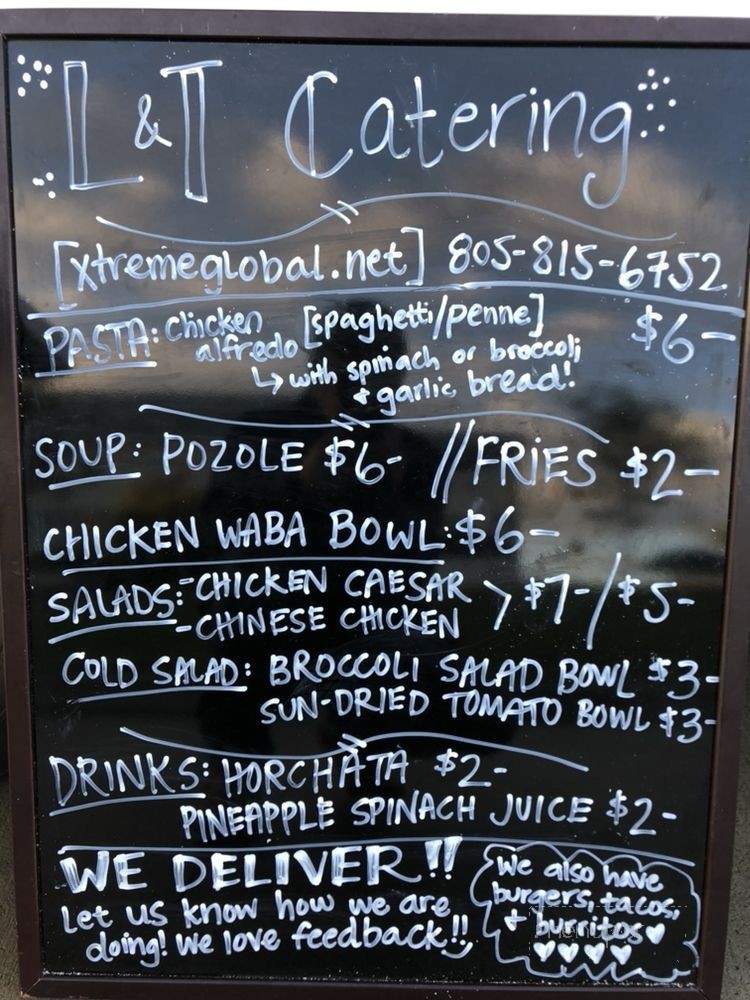 L & T Catering
[xtremeglobal.net] 805-815-6752
PASTA: chicken alfredo [spaghetti/penne] $6-
↳ with spinach or broccoli
+ garlic bread!
SOUP: POZOLE $6- // FRIES $2-
CHICKEN WABA BOWL: $6-
SALADS: -CHICKEN CAESAR > $7- / $5-
-CHINESE CHICKEN
COLD SALAD: BROCCOLI SALAD BOWL $3-
SUN-DRIED TOMATO BOWL $3-
DRINKS: HORCHATA $2-
PINEAPPLE SPINACH JUICE $2-
WE DELIVER!!
Let us know how we are
doing! We love feedback!!
We also have
burgers, tacos,
+ burritos ♥
♥♥♥♥